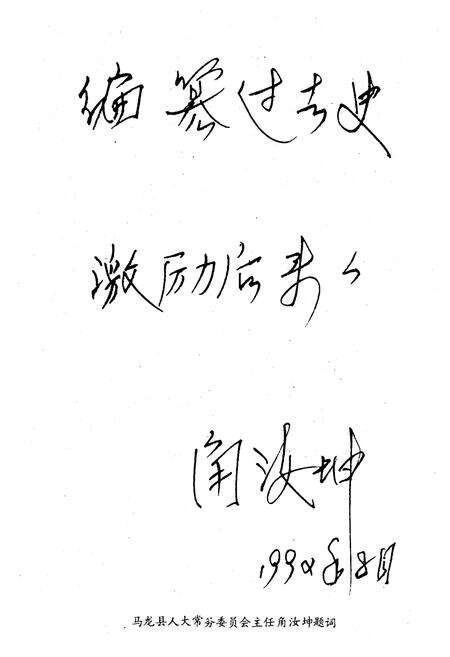 编纂过去史
激励后来人
角汝坤
马龙县人大常务委员会主任角汝坤题词